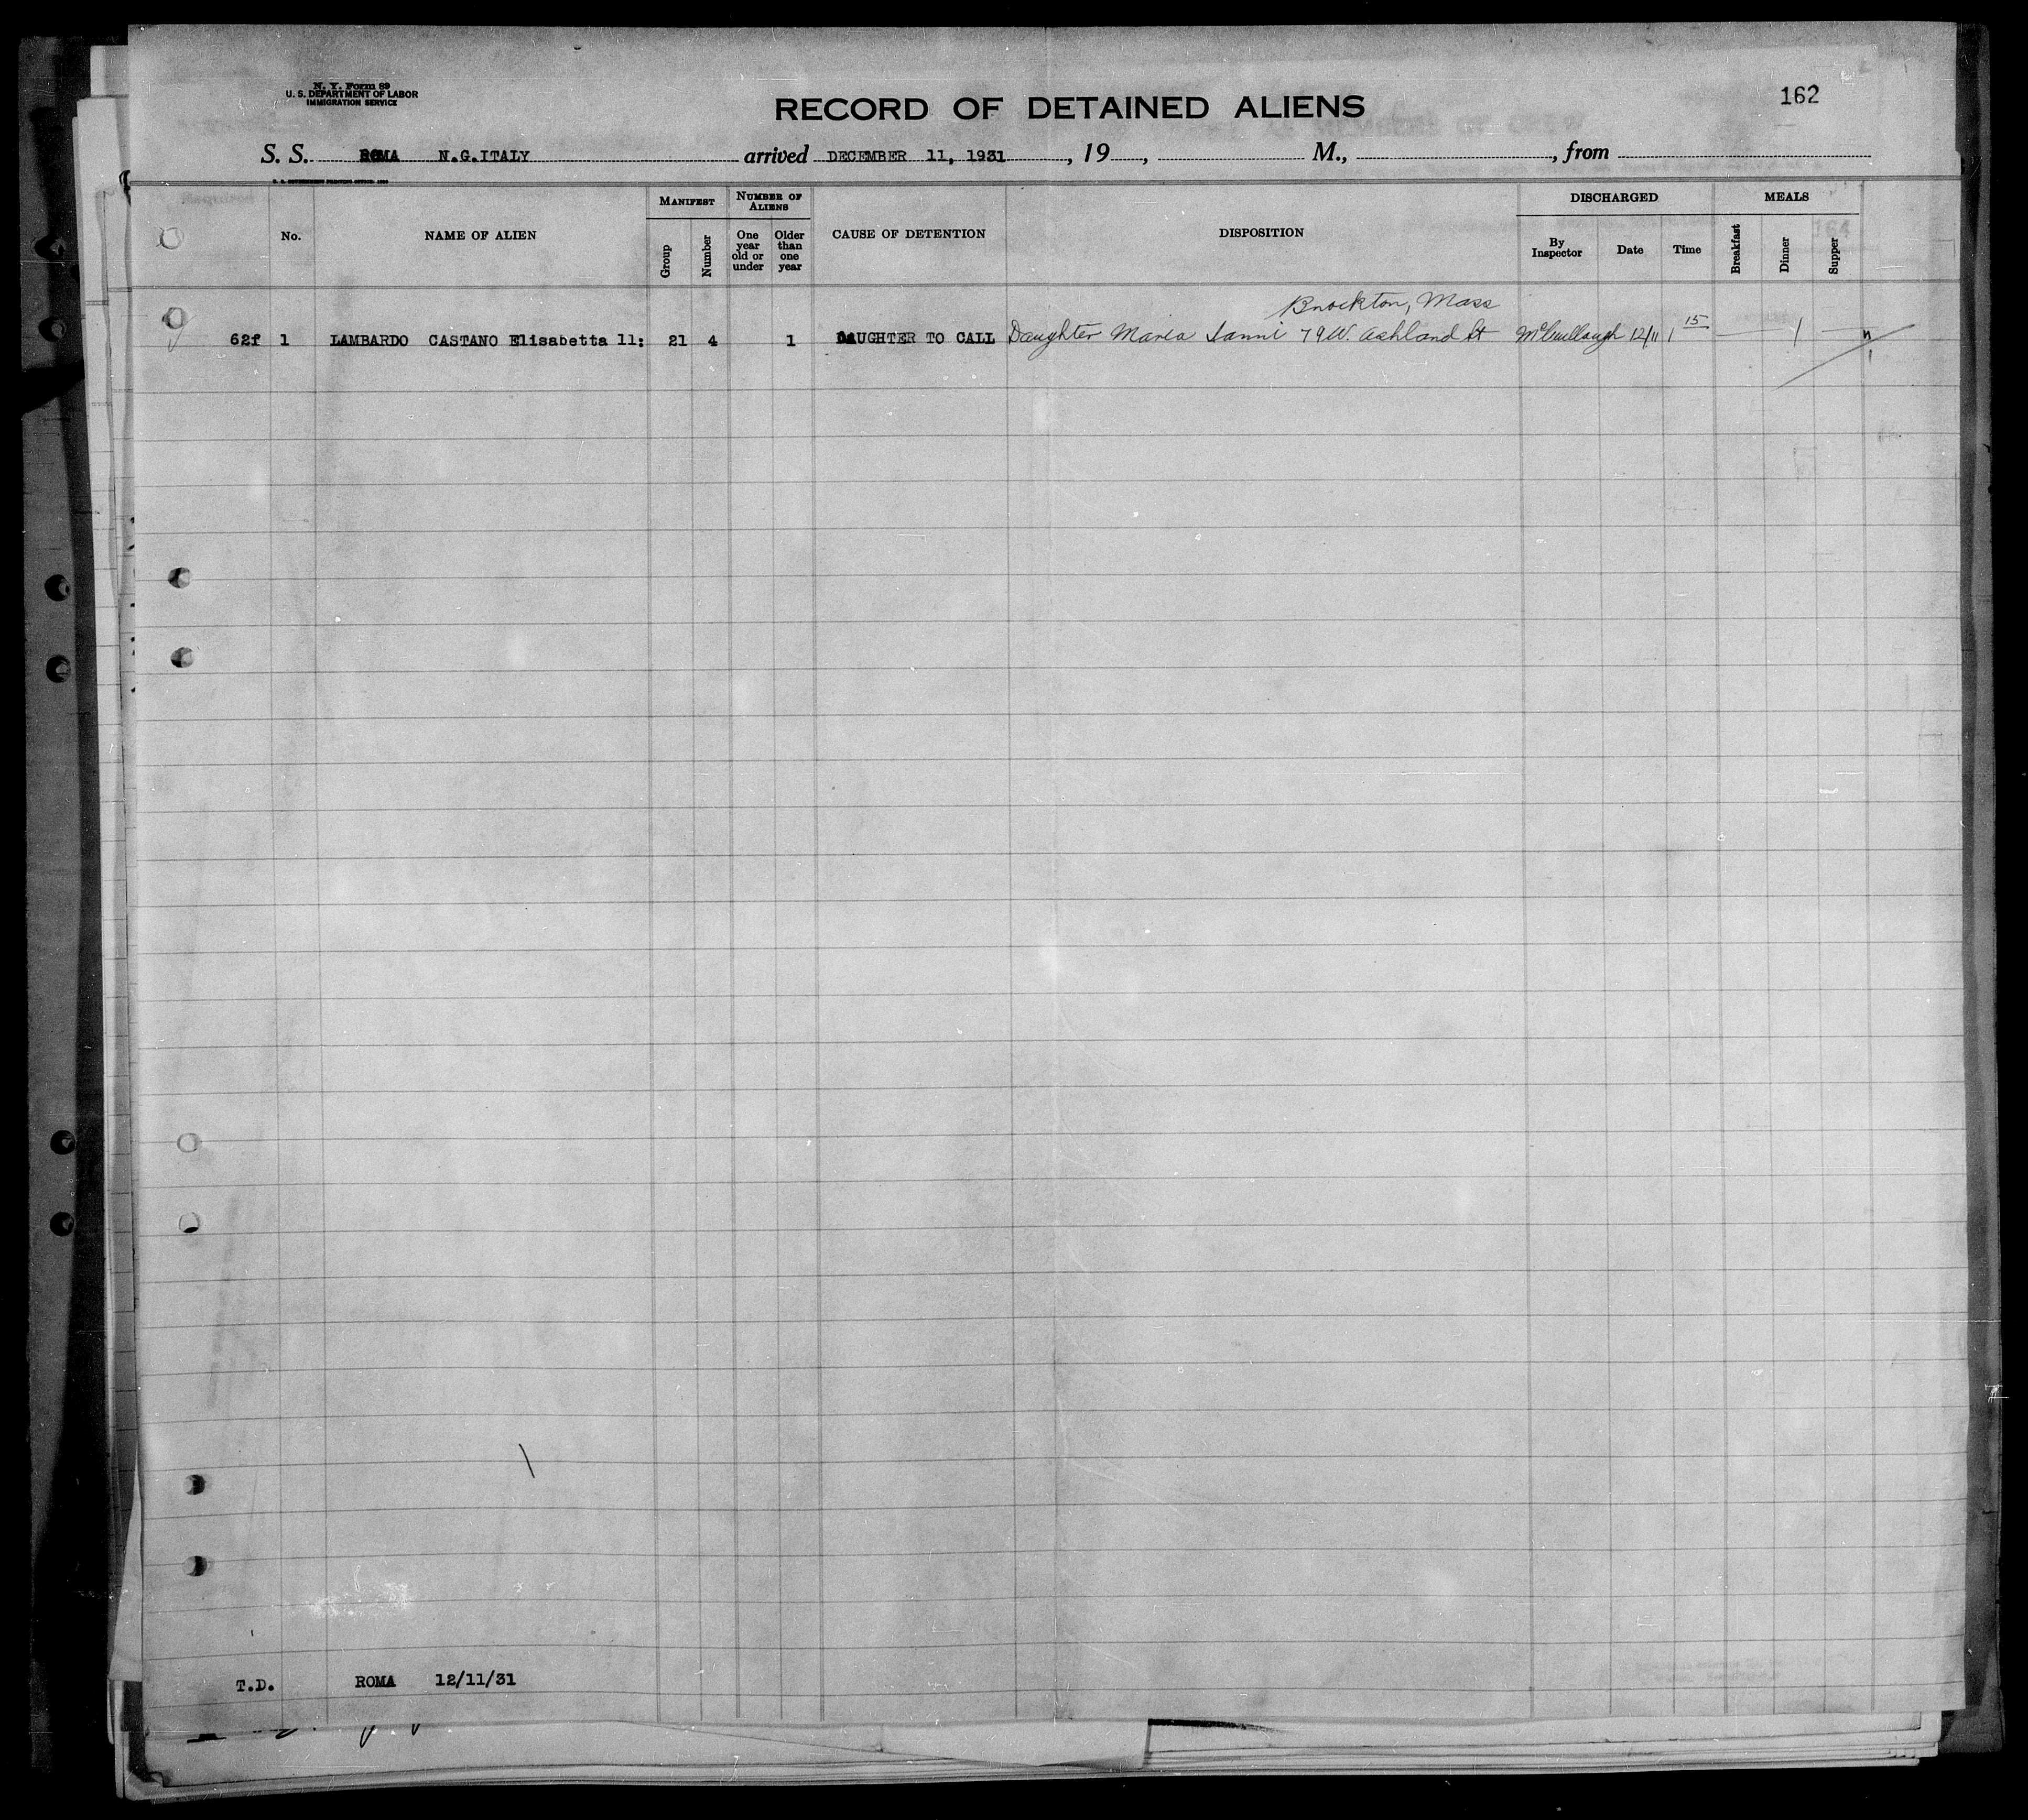 N. Y. Form 89
U. S. DEPARTMENT OF LABOR
IMMIGRATION SERVICE
162
RECORD OF DETAINED ALIENS
S. S. ROMA N.G.ITALY arrived DECEMBER 11, 1931, 19, M., from
No.
NAME OF ALIEN
MANIFEST
Group
Number
NUMBER OF ALIENS
One year old or under
Older than one year
CAUSE OF DETENTION
DISPOSITION
DISCHARGED
By Inspector
Date
Time
MEALS
Breakfast
Dinner
Supper
Brockton, Mass
62f 1 LAMBARDO CASTANO Elisabetta ll: 21 4 1 DAUGHTER TO CALL Daughter Maria Ianni 79 W. Ashland St McCullough 12/11 1 15 — 1 —
T.D. ROMA 12/11/31